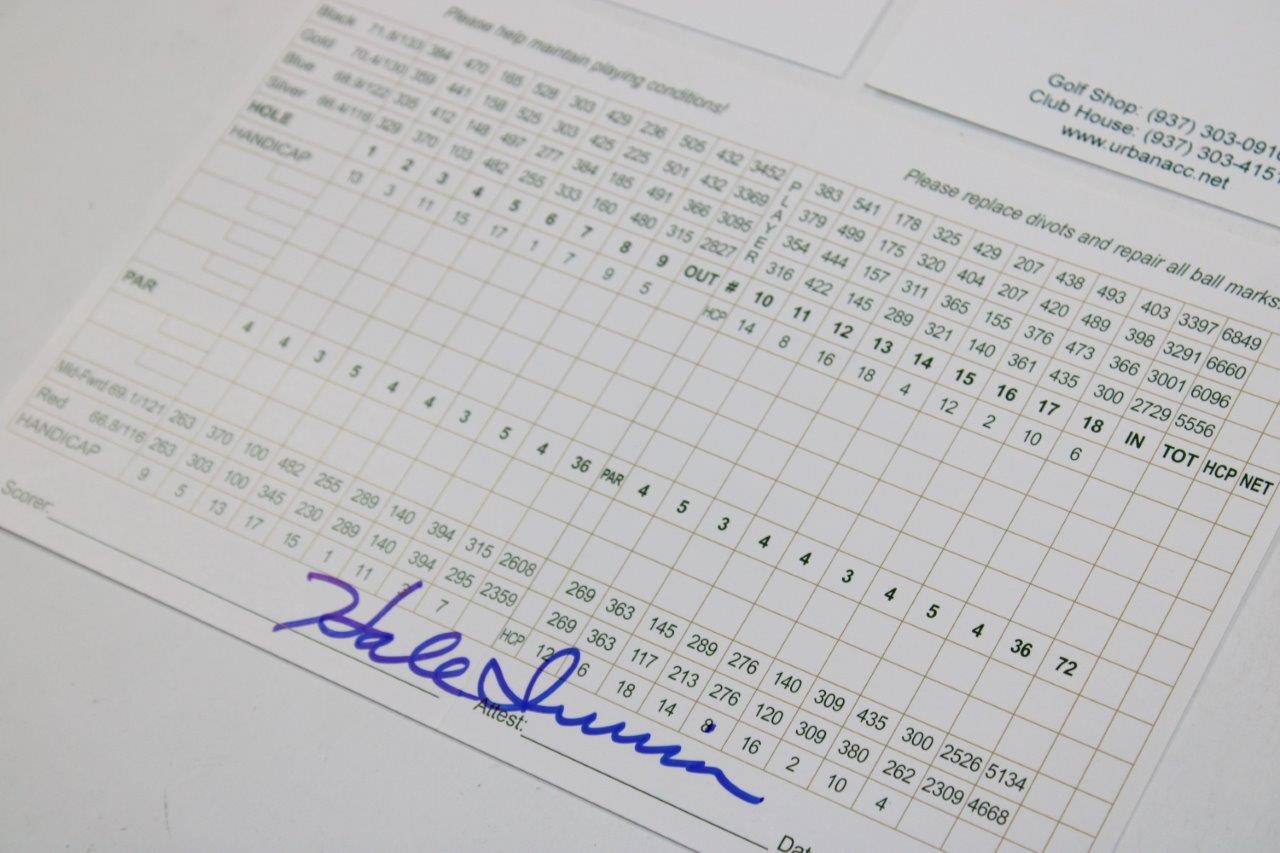 Golf Shop: (937) 303-091
Club House: (937) 303-4151
www.urbanacc.net
Please help maintain playing conditions!
Please replace divots and repair all ball marks.
Black 71.8/133 384 470 165 528 303 429 236 505 432 3452 PLAYER 383 541 178 325 429 207 438 493 403 3397 6849
Gold 70.4/130 359 441 158 525 303 425 225 501 432 3369 379 499 175 320 404 207 420 489 398 3291 6660
Blue 68.9/122 335 412 148 497 277 384 185 491 366 3095 354 444 157 311 365 155 376 473 366 3001 6096
Silver 66.4/116 329 370 103 482 255 333 160 480 315 2827 316 422 145 289 321 140 361 435 300 2729 5556
HOLE 1 2 3 4 5 6 7 8 9 OUT # 10 11 12 13 14 15 16 17 18 IN TOT HCP NET
HANDICAP 13 3 11 15 17 1 7 9 5 HCP 14 8 16 18 4 12 2 10 6
PAR 4 4 3 5 4 4 3 5 4 36 PAR 4 5 3 4 4 3 4 5 4 36 72
Mid-Fwrd 69.1/121 263 370 100 482 255 289 140 394 315 2608 269 363 145 289 276 140 309 435 300 2526 5134
Red 66.8/116 263 303 100 345 230 289 140 394 295 2359 269 363 117 213 276 120 309 380 262 2309 4668
HANDICAP 9 5 13 17 15 1 11 3 7 HCP 12 6 18 14 8 16 2 10 4
Hale Irwin
Scorer: Attest: Dat